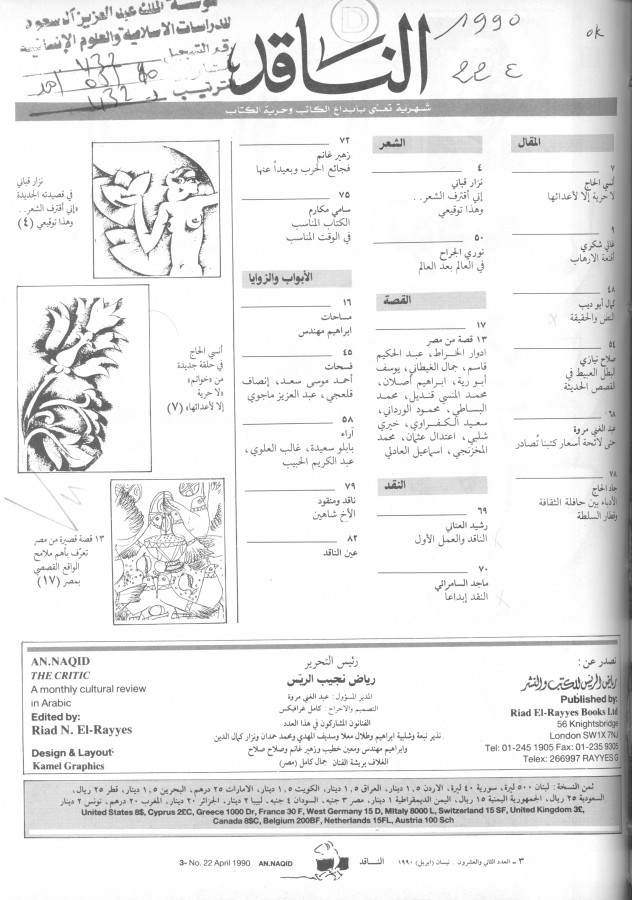 مؤسسة الملك عبد العزيز آل سعود
للدراسات الاسلامية والعلوم الإنسانية
رقم التسجيل
الترتيب
432
D
1990
22 ع
ok
الناقد
شهرية تعنى بابداع الكاتب وحرية الكتاب
المقال
٧
أنسي الحاج
لا حرية إلا لأعدائها
٩
غالي شكري
أقنعة الارهاب
٤٨
كمال أبو ديب
النص والحقيقة
٥٤
صلاح نيازي
البطل العبيط في
القصص الحديثة
٦٨
عبد الغني مروة
حتى لائحة أسعار كتبنا تُصادر
٧٨
جاد الحاج
الأدباء بين حافلة الثقافة
وقطار السلطة
الشعر
٤
نزار قباني
إني أقترف الشعر..
وهذا توقيعي
٥٠
نوري الجراح
في العالم بعد العالم
القصة
١٧
١٣ قصة من مصر
ادوار الخراط، عبد الحكيم
قاسم، جمال الغيطاني، يوسف
أبو رية، ابراهيم أصلان،
محمد المنسي قنديل، محمد
البساطي، محمود الورداني،
سعيد الكفراوي، خيري
شلبي، اعتدال عثمان، محمد
المخزنجي، اسماعيل العادلي
النقد
٦٩
رشيد العناني
الناقد والعمل الأول
٧٠
ماجد السامرائي
النقد إبداعاً
٧٢
زهير غانم
فجائع الحرب وبعيداً عنها
٧٥
سامي مكارم
الكتاب المناسب
في الوقت المناسب
الأبواب والزوايا
١٦
مساحات
ابراهيم مهندس
٤٥
فسحات
أحمد موسى سعد، إنصاف
قلعجي، عبد العزيز ماجوي
٥٨
آراء
بابلو سعيدة، غالب العلوي،
عبد الكريم الحبيب
٧٩
ناقد ومنقود
الأخ شاهين
٨٢
عين الناقد
نزار قباني
في قصيدته الجديدة
«إني أقترف الشعر..
وهذا توقيعي (٤)
أنسي الحاج
في حلقة جديدة
من «خواتم»
«لا حرية
إلا لأعدائها» (٧)
١٣ قصة قصيرة من مصر
تعرّف بأهم ملامح
الواقع القصصي
بمصر (١٧)
تصدر عن:
رياض الريس للكتب والنشر
Published by:
Riad El-Rayyes Books Ltd
56 Knightsbridge
London SW1X 7NJ
Tel: 01-245 1905 Fax: 01-235 9305
Telex: 266997 RAYYES G
رئيس التحرير
رياض نجيب الريّس
المدير المسؤول: عبد الغني مروة
التصميم والاخراج: كامل غرافيكس
الفنانون المشاركون في هذا العدد
نذير نبعة وشلبية ابراهيم وطلال معلا وصديف المهدي ومحمد حمدان ونزار كمال الدين
وابراهيم مهندس ومعين خطيب وزهير غانم وصلاح صلاح
الغلاف بريشة الفنان جمال كامل (مصر)
AN.NAQID
THE CRITIC
A monthly cultural review
in Arabic
Edited by:
Riad N. El-Rayyes
Design & Layout:
Kamel Graphics
ثمن النسخة: لبنان ٥٠٠ ليرة، سورية ٤٠ ليرة، الاردن ١,٥ دينار، العراق ١,٥ دينار، الكويت ١,٥ دينار، الامارات ٢٥ درهم، البحرين ١,٥ دينار، قطر ٢٥ ريال،
السعودية ٢٥ ريال، الجمهورية اليمنية ١٥ ريال، اليمن الديمقراطية ١ دينار، مصر ٣ جنيه، السودان ٤ جنيه، ليبيا ٢ دينار، الجزائر ٢٠ دينار، المغرب ٢٠ درهم، تونس ٢ دينار
United States 8$, Cyprus 2£C, Greece 1000 Dr, France 30 F, West Germany 15 D, Mitaly 8000 L, Switzerland 15 SF, United Kingdom 3£,
Canada 8$C, Belgium 200BF, Netherlands 15FL, Austria 100 Sch
٣ - العدد الثاني والعشرون . نيسان (ابريل) ١٩٩٠ الناقد
3- No. 22 April 1990 AN.NAQID